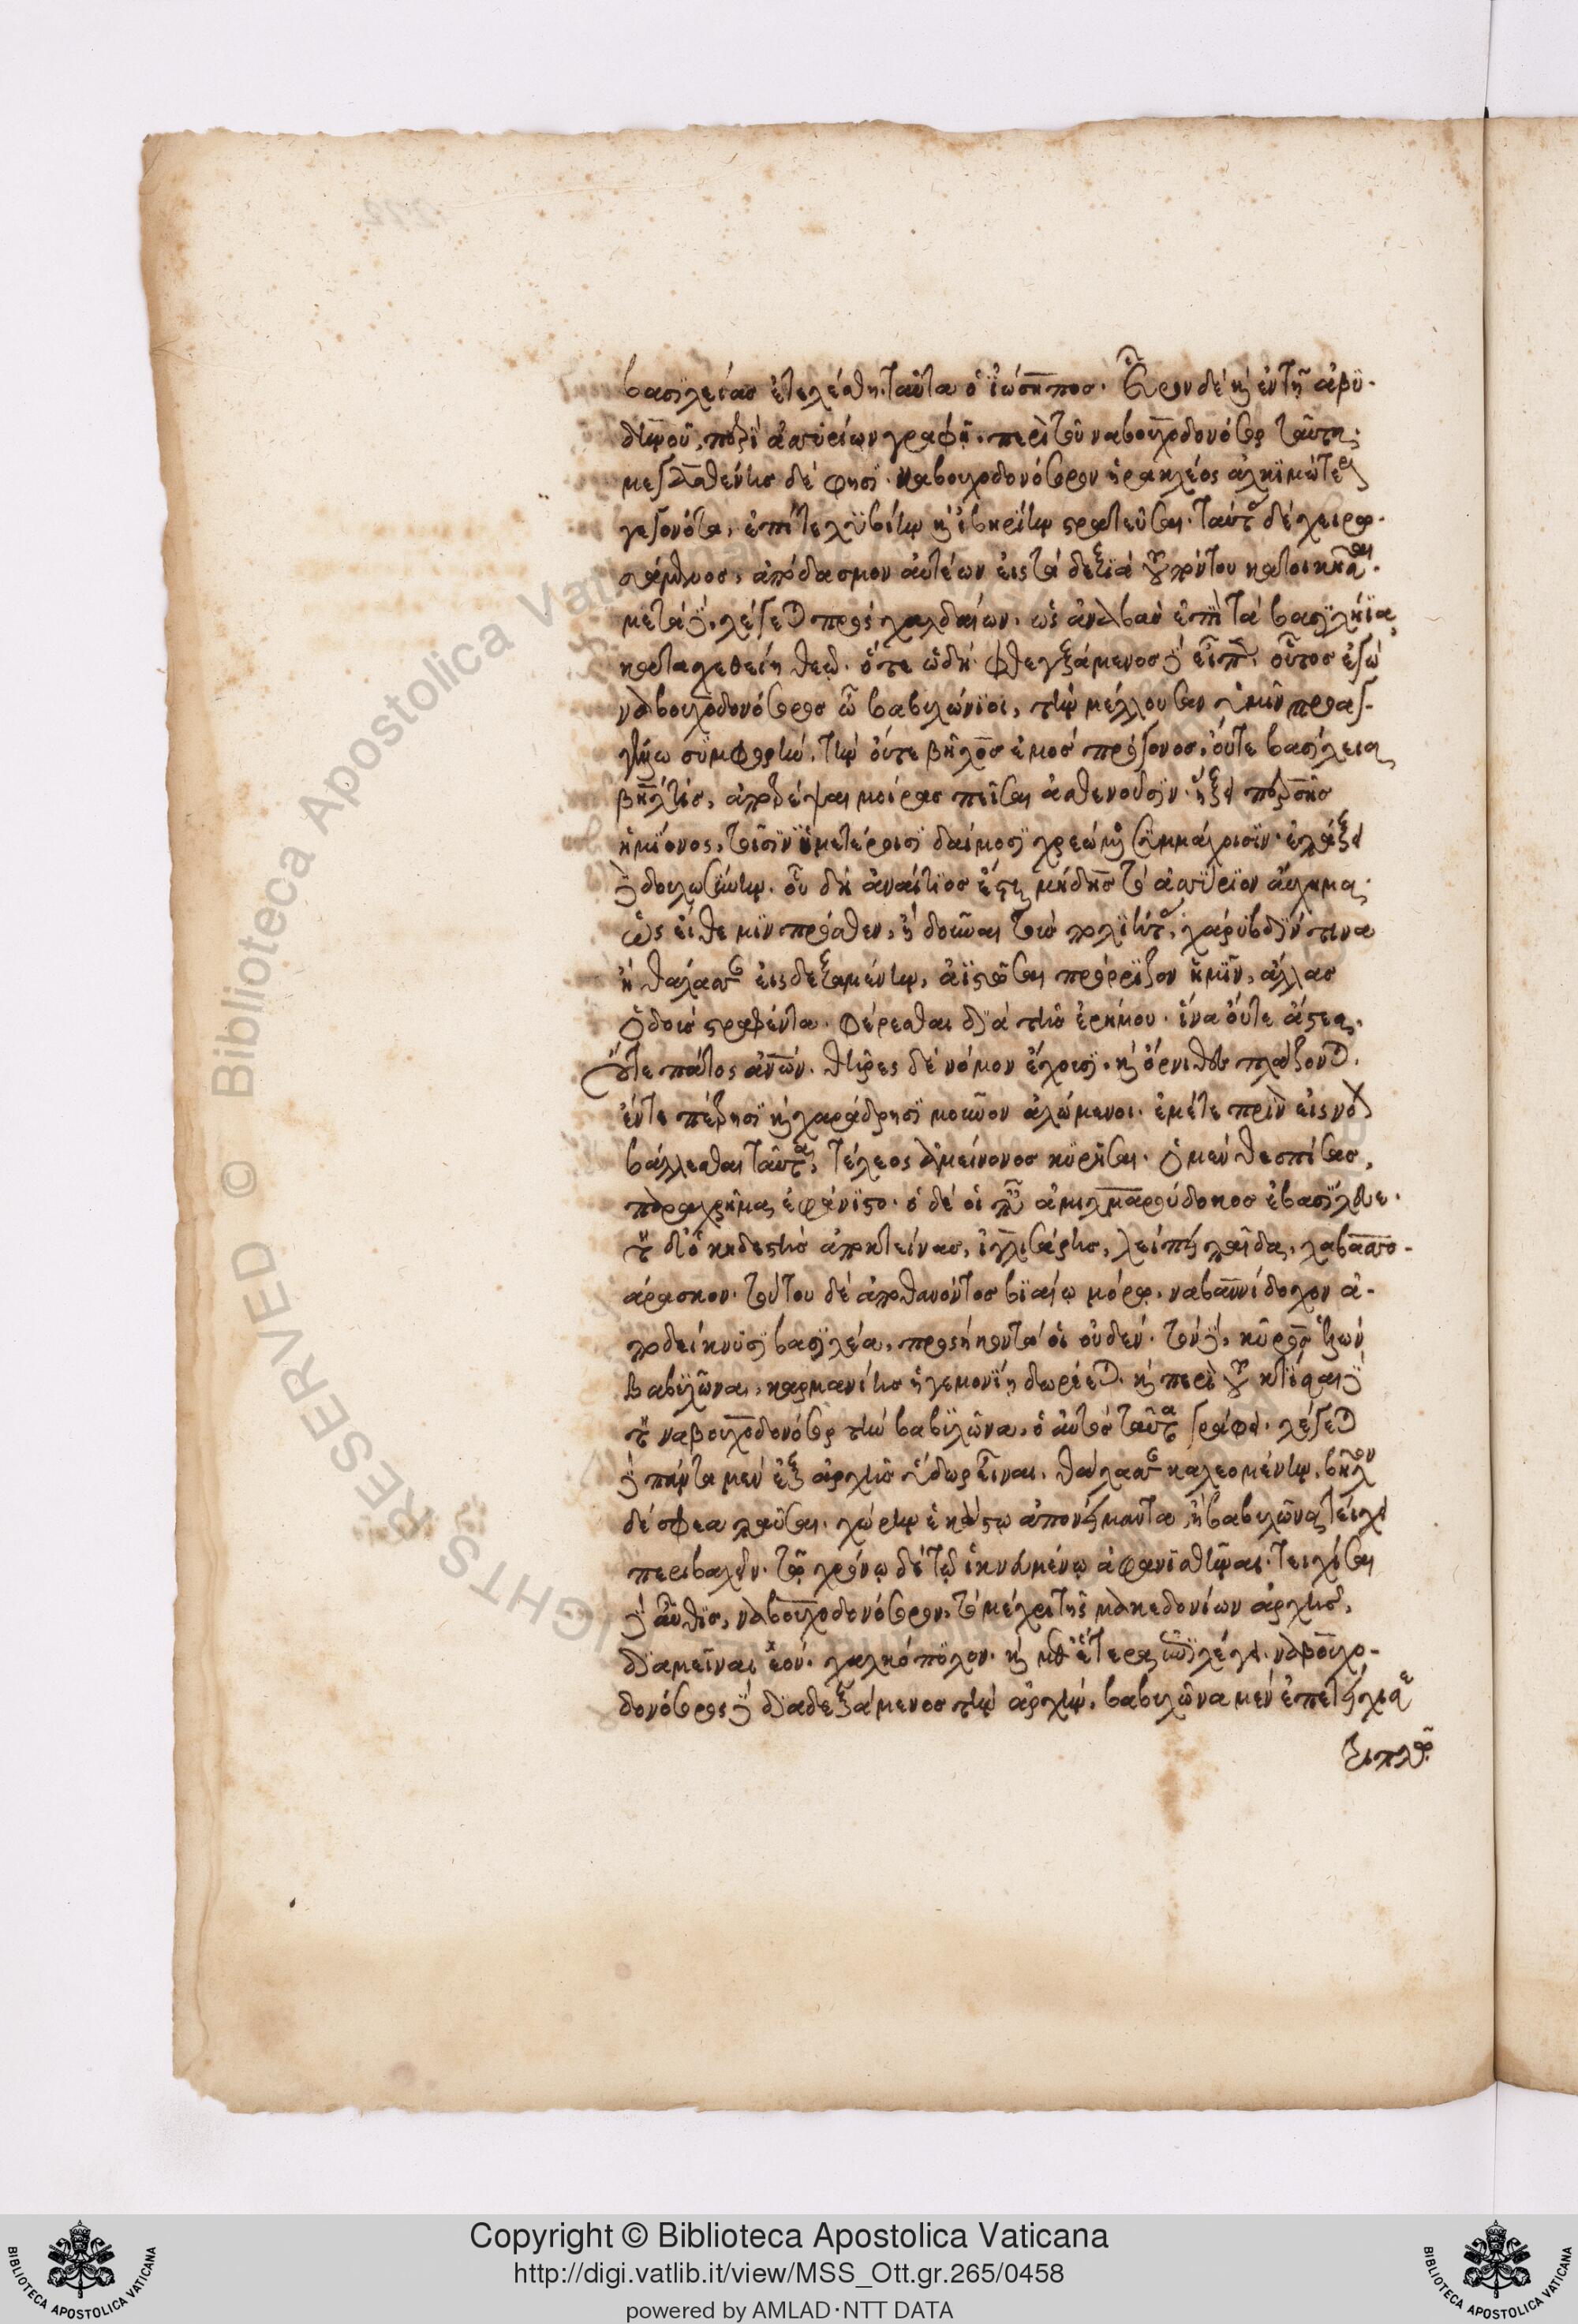 βασϊλείας ἐτελέσθη. ταῦτα ὁ ϊώσηπος. εὗρον δὲ καὶ ἐν τῆ ἀβϋ-
δηνοῦ, περὶ ἀσσυρίων γραφῆ. περὶ τοῦ ναβουχοδονόσορ ταῦτα.
μεγασθένης δέ φησϊ. ναβουχοδονόσορον ἡρακλέος ἀλκϊμώτερον
γεγονότα, ἐπί τε λϋβίην καὶ ἰβηρίην στρατεῦσαι. ταύτας δὲ χειρω-
σάμενος, ἀπόδασμον αὐτέων εἰς τὰ δεξϊὰ τοῦ πόντου κατοικῆσαι.
μετὰ δὲ, λέγεται πρὸς χαλδαίων. ὡς ἀναβὰς ἐπὶ τὰ βασϊλήϊα,
κατασχεθείη θεῷ. ὅτεω δή. φθεγξάμενος δὲ εἶπεν. οὗτος ἐγὼ
ναβουχοδονόσορος ὦ βαβυλώνϊοι, τὴν μέλλουσαν ὑμῖν προαγ-
γέλλω συμφορήν. τὴν οὔτε βῆλος ἐμὸς πρόγονος, οὔτε βασίλεια
βῆλτις, ἀποτρέψαι μοίρας πεῖσαι ἀσθενοῦσϊν. ἥξει πέρσης
ἡμΐονος, τοῖσϊν ὑμετέροισϊ δαίμοσϊ χρεώμενος συμμάχοισϊν. ἐπάξει
δὲ δουλοσύνην. οὗ δὴ συναίτϊος ἔσται μήδης τὸ ἀσσύρϊον αὔχημα.
ὡς εἴθε μϊν πρόσθεν, ἢ δοῦναι τοὺς πολιήτας, χάρυβδϊν τινα
ἢ θάλασσαν εἰσδεξαμένην, ἀϊστῶσαι πρόρριζον ἤ μϊν, ἄλλας
ὁδοὺς στραφέντα. φέρεσθαι διὰ τῆς ἐρήμου. ἵνα οὔτε ἄστεα,
οὔτε πάτος ἀνθρώπων. θῆρες δὲ νόμον ἔχουσϊ. καὶ ὄρνιθες πλάζονται.
ἔν τε πέτρησϊ καὶ χαράδρησϊ μοῦνον ἀλώμενοι. ἐμέ τε πρὶν εἰς νόον
βάλλεσθαι ταῦτα, τέλεος ἀμείνονος κϋρῆσαι. ὁ μὲν θεσπίσας,
παραχρῆμα ἠφάνιστο. ὁ δέ οἱ παῖς ἀμιλμαρούδοκος ἐβασΐλευε.
τὸν δὲ ὁ κηδεστὴς ἀποκτείνας, ἰγλισάρης, λείπει παῖδα, λαβασσο-
άρασκον. τούτου δὲ ἀποθανόντος βϊαίω μόρω. ναβαννίδοχον ἀ-
ποδείκνυσϊ βασϊλέα, προσήκοντά οἱ οὐδέν. τὸν δὲ, κῦρος ἑλὼν
βαβϋλῶνα, καρμανίης ἡγεμονΐη δωρέεται. καὶ περὶ τοῦ κτίσαι δὲ
τὸν ναβουχοδονόσορ τὴν βαβυλῶνα, ὁ αὐτὸς ταῦτα γράφει. λέγεται
δὲ πάντα μὲν ἐξ ἀρχῆς ὕδωρ εἶναι. θάλασσαν καλεομένην. βῆλον
δέ σφεα παῦσαι. χώρην ἑκάστω ἀπονείμαντα, καὶ βαβυλῶνα τείχει
περιβαλεῖν. τῷ χρόνω δὲ τῷ ἱκνευμένω ἀφανϊσθῆναι. τειχίσαι
δὲ αὖθις, ναβουχοδονόσορον, τὸ μέχρι τῆς μακεδονίων ἀρχῆς,
διαμεῖναι ἐόν. χαλκόπϋλον. καὶ μεθ' ἕτερα ἐπϊλέγει. ναβουχο-
δονόσορος δὲ διαδεξάμενος τὴν ἀρχὴν, βαβυλῶνα μὲν ἐπετείχισε
τριπλῷ